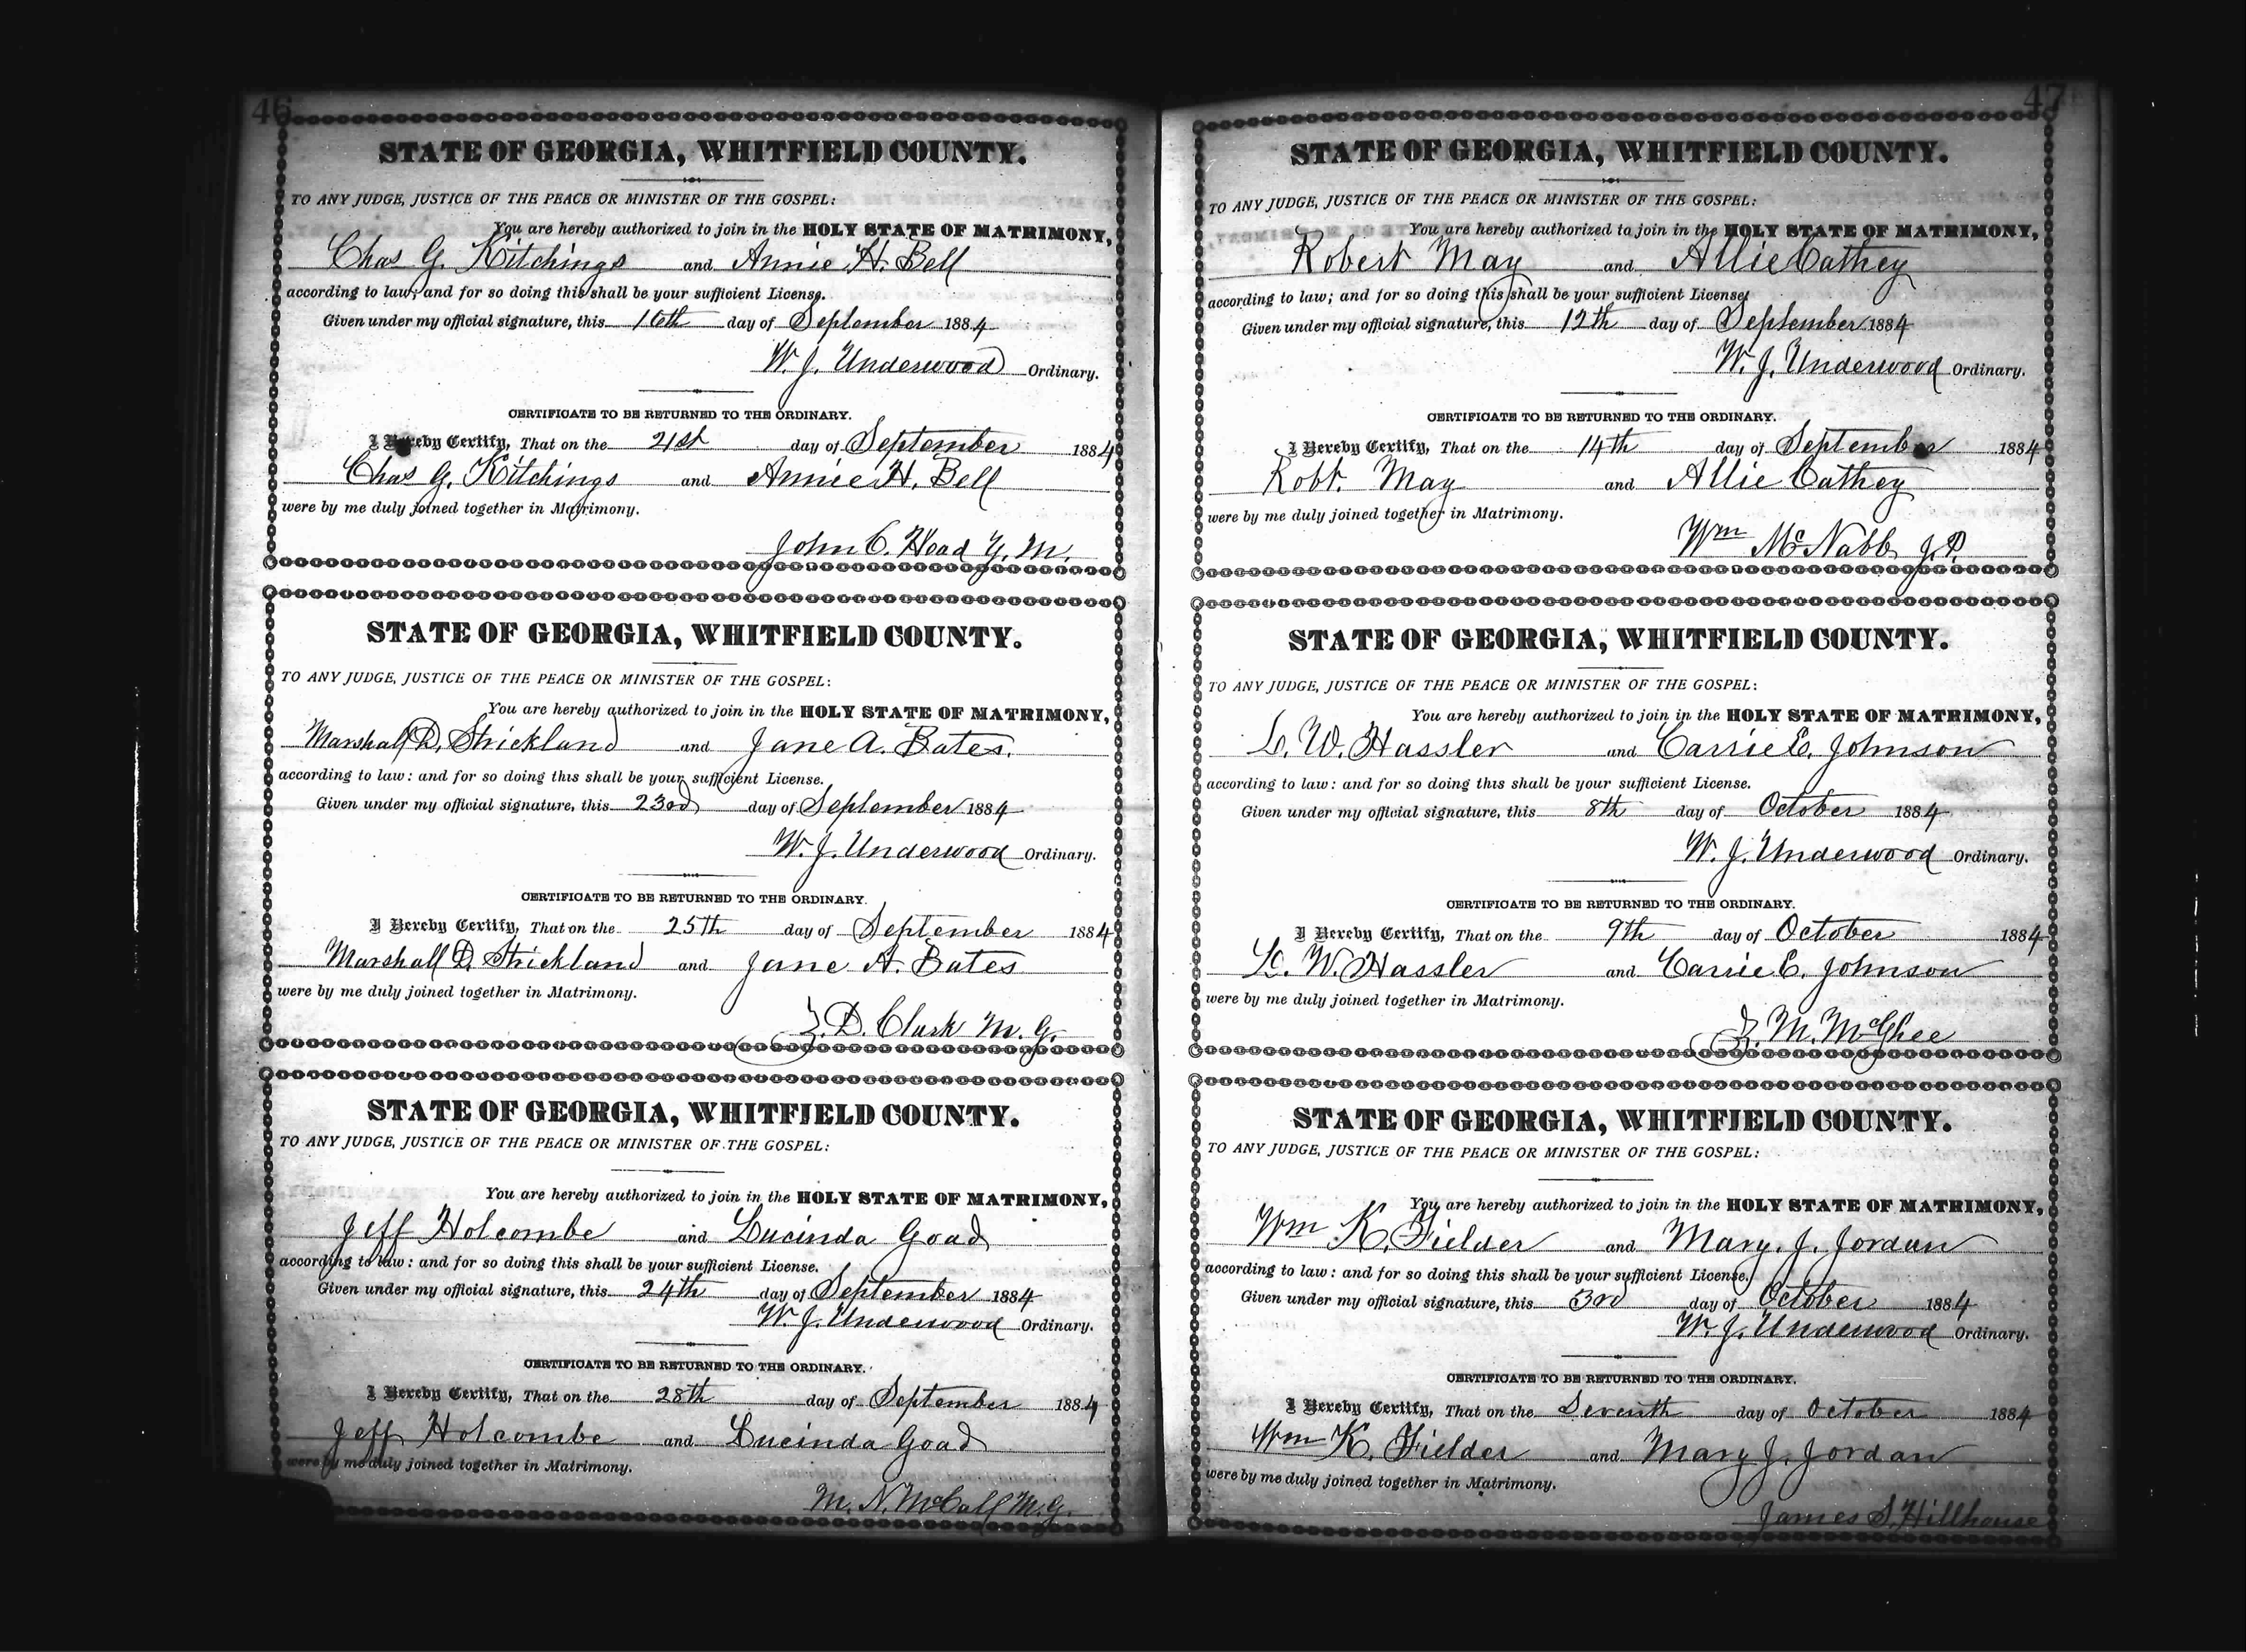 46
STATE OF GEORGIA, WHITFIELD COUNTY.
TO ANY JUDGE, JUSTICE OF THE PEACE OR MINISTER OF THE GOSPEL:
You are hereby authorized to join in the HOLY STATE OF MATRIMONY,
Chas G. Kitchings and Annie H. Bell
according to law; and for so doing this shall be your sufficient License.
Given under my official signature, this 16th day of September 1884
W. J. Underwood Ordinary.
CERTIFICATE TO BE RETURNED TO THE ORDINARY.
I Hereby Certify, That on the 21st day of September 1884
Chas G. Kitchings and Annie H. Bell
were by me duly joined together in Matrimony.
John C. Head
STATE OF GEORGIA, WHITFIELD COUNTY.
TO ANY JUDGE, JUSTICE OF THE PEACE OR MINISTER OF THE GOSPEL:
You are hereby authorized to join in the HOLY STATE OF MATRIMONY,
Marshall D. Strickland and Jane A. Bates.
according to law: and for so doing this shall be your sufficient License.
Given under my official signature, this 23rd day of September 1884
W. J. Underwood Ordinary.
CERTIFICATE TO BE RETURNED TO THE ORDINARY.
I Hereby Certify, That on the 25th day of September 1884
Marshall D. Strickland and Jane A. Bates
were by me duly joined together in Matrimony.
Z. D. Clark M. G.
STATE OF GEORGIA, WHITFIELD COUNTY.
TO ANY JUDGE, JUSTICE OF THE PEACE OR MINISTER OF THE GOSPEL:
You are hereby authorized to join in the HOLY STATE OF MATRIMONY,
Jeff Holcombe and Lucinda Goad
according to law: and for so doing this shall be your sufficient License.
Given under my official signature, this 24th day of September 1884
W. J. Underwood Ordinary.
CERTIFICATE TO BE RETURNED TO THE ORDINARY.
I Hereby Certify, That on the 28th day of September 1884
Jeff Holcombe and Lucinda Goad
were by me duly joined together in Matrimony.
M. N. McCall M. G.
47
STATE OF GEORGIA, WHITFIELD COUNTY.
TO ANY JUDGE, JUSTICE OF THE PEACE OR MINISTER OF THE GOSPEL:
You are hereby authorized to join in the HOLY STATE OF MATRIMONY,
Robert May and Allie Cathey
according to law; and for so doing this shall be your sufficient License.
Given under my official signature, this 12th day of September 1884
W. J. Underwood Ordinary.
CERTIFICATE TO BE RETURNED TO THE ORDINARY.
I Hereby Certify, That on the 14th day of September 1884
Robt. May and Allie Cathey
were by me duly joined together in Matrimony.
Wm McNabb J. P.
STATE OF GEORGIA, WHITFIELD COUNTY.
TO ANY JUDGE, JUSTICE OF THE PEACE OR MINISTER OF THE GOSPEL:
You are hereby authorized to join in the HOLY STATE OF MATRIMONY,
L. W. Hassler and Carrie E. Johnson
according to law: and for so doing this shall be your sufficient License.
Given under my official signature, this 8th day of October 1884
W. J. Underwood Ordinary.
CERTIFICATE TO BE RETURNED TO THE ORDINARY.
I Hereby Certify, That on the 9th day of October 1884
L. W. Hassler and Carrie E. Johnson
were by me duly joined together in Matrimony.
Z. M. McGhee
STATE OF GEORGIA, WHITFIELD COUNTY.
TO ANY JUDGE, JUSTICE OF THE PEACE OR MINISTER OF THE GOSPEL:
You are hereby authorized to join in the HOLY STATE OF MATRIMONY,
Wm K. Fielder and Mary. J. Jordan
according to law: and for so doing this shall be your sufficient License.
Given under my official signature, this 3rd day of October 1884
W. J. Underwood Ordinary.
CERTIFICATE TO BE RETURNED TO THE ORDINARY.
I Hereby Certify, That on the Seventh day of October 1884
Wm K. Fielder and Mary J. Jordan
were by me duly joined together in Matrimony.
James S. Hillhouse